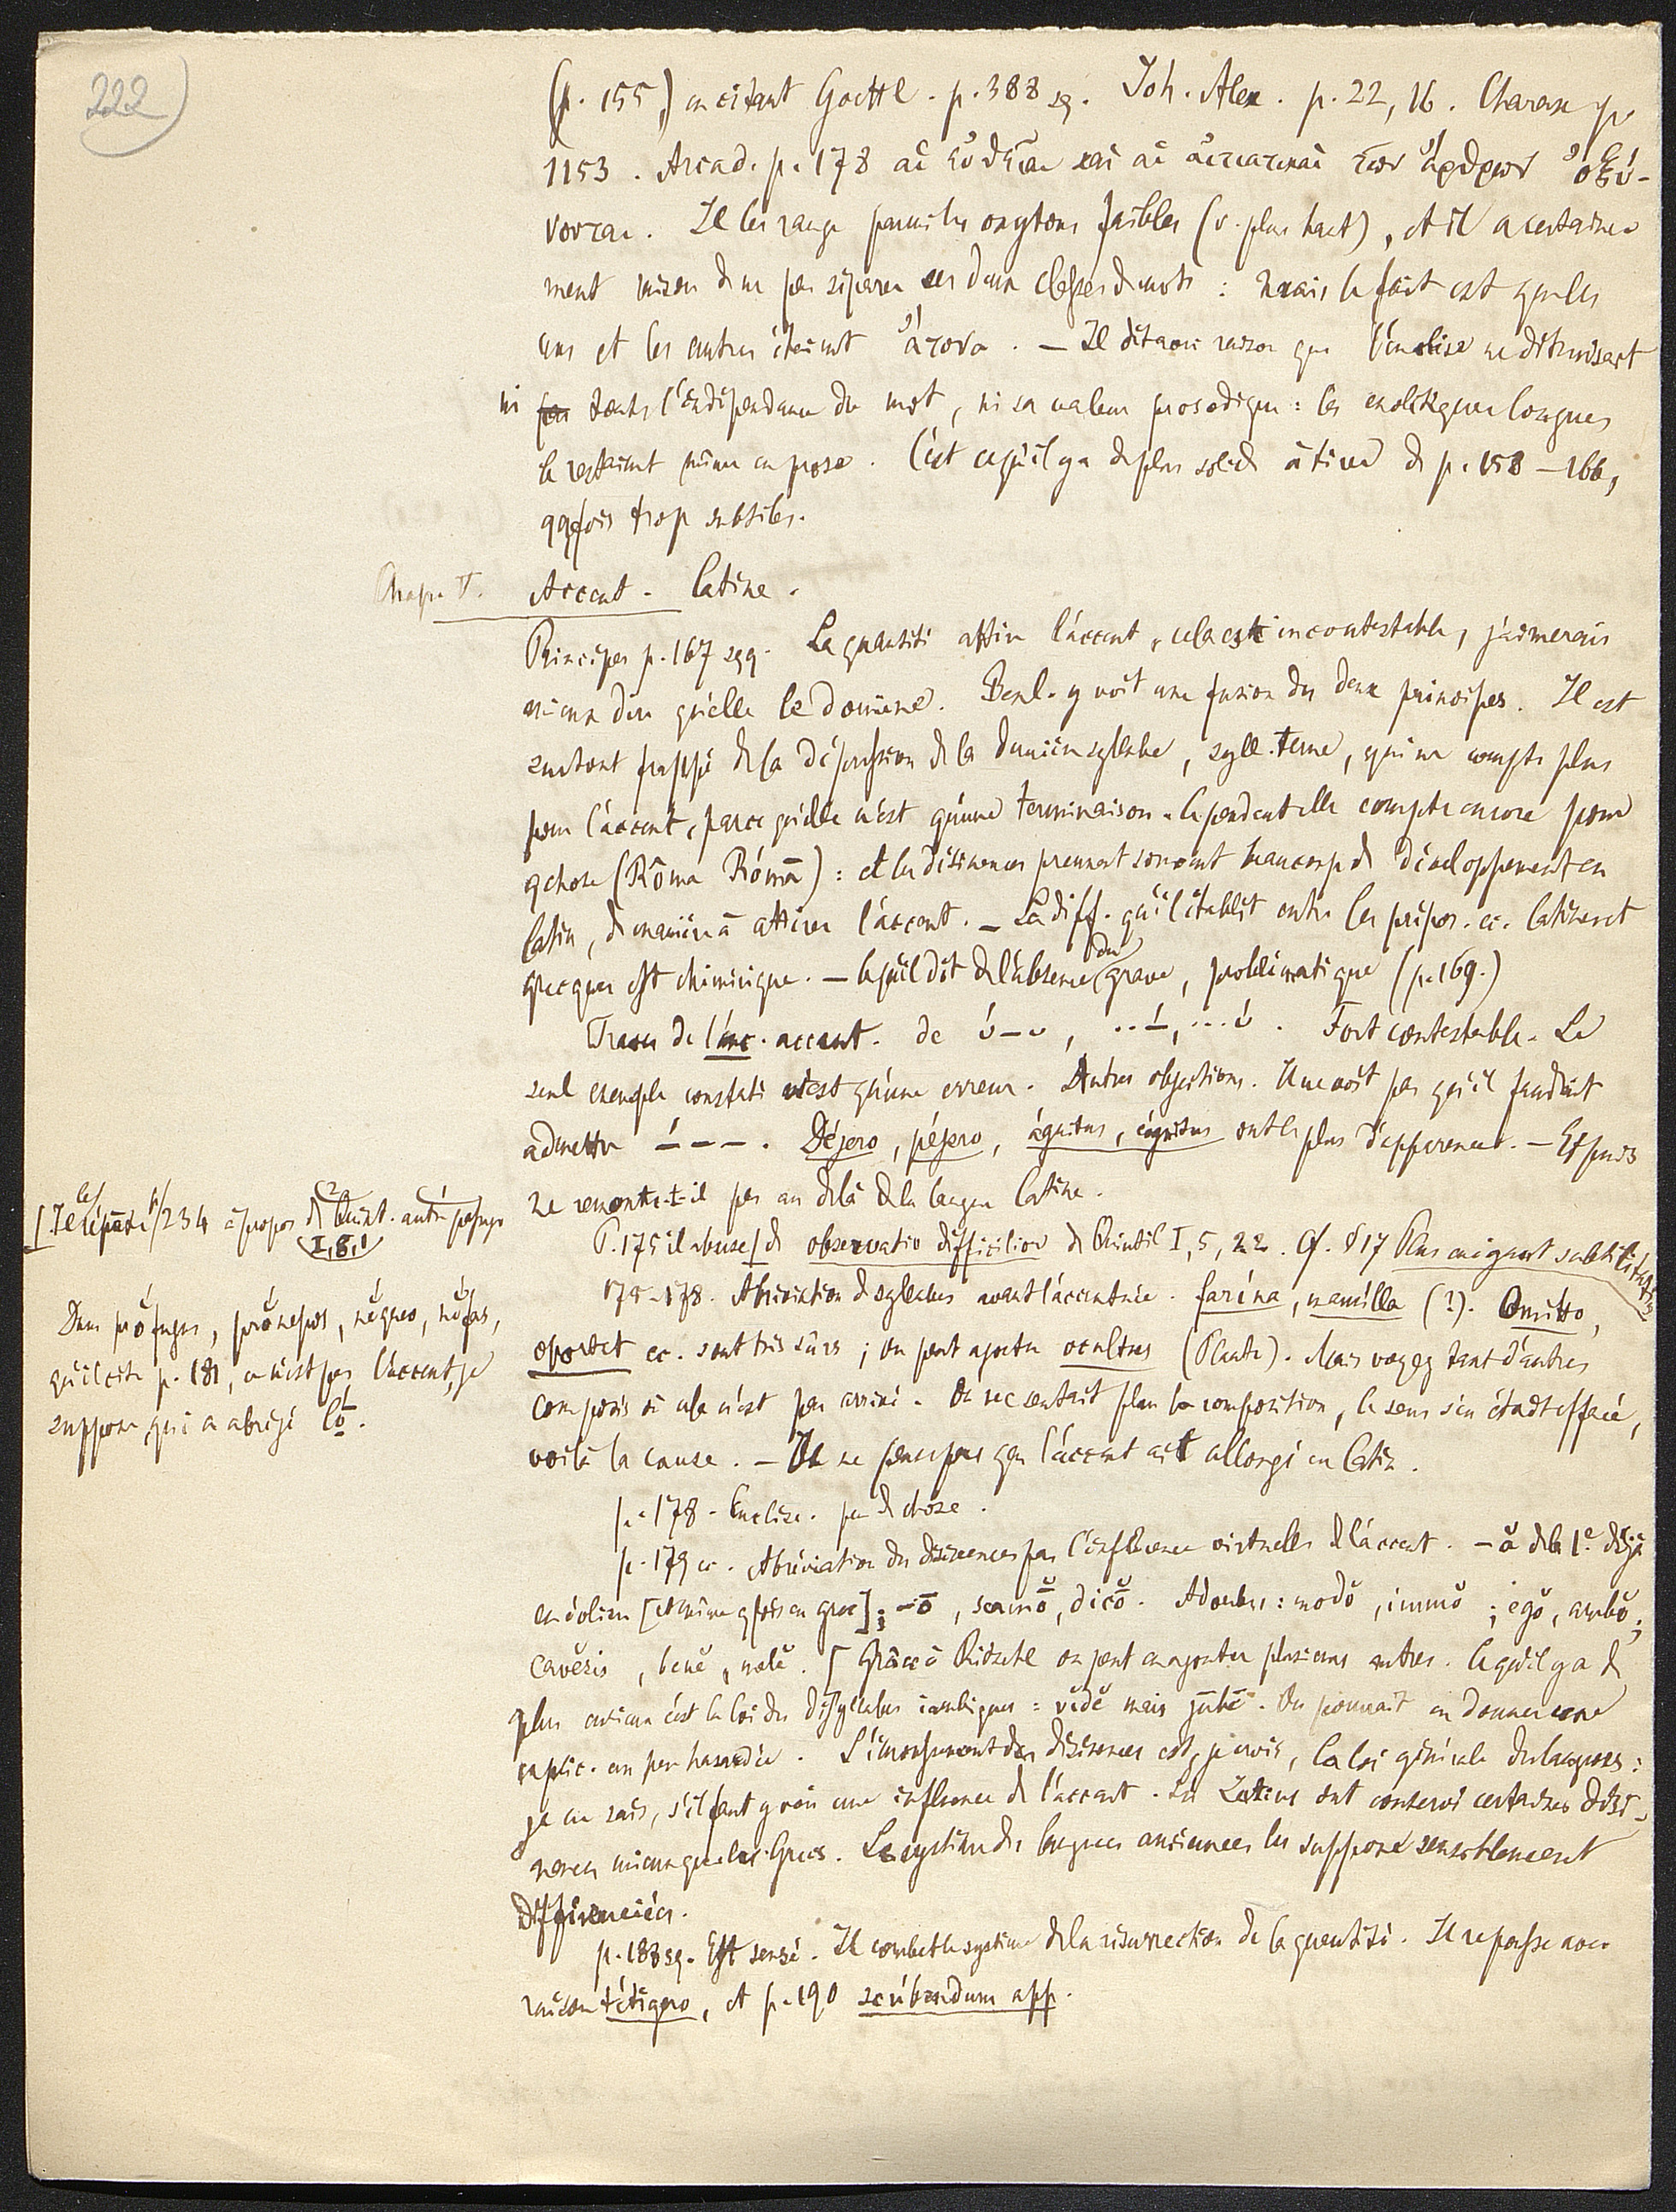 222)
(p. 155,) en citant Goettl. p. 388 sq. Joh. Alex. p. 22, 16. Charax p.
1153. Arcad. p. 178 αἱ εὐθεῖαι καὶ αἱ αἰτιατικαὶ τῶν ἄρθρων ὀξύ-
νονται. Il les range parmi les oxytons faibles (v. plus haut), et il a certaine-
ment raison de ne pas séparer ces deux classes de mots : mais le fait est que les
uns et les autres étaient ἄτονα. — Il dit avec raison que l'enclise ne détruisait
ni toute l'indépendance du mot, ni sa valeur prosodique : les enclitiques longues
le restaient même en prose. C'est ce qu'il y a de plus solide à tirer de p. 158—166,
qqfois trop subtiles.
Chap. V. Accent. latine.
Principes p. 167 sqq. La quantité attire l'accent, cela est incontestable, j'aimerais
mieux dire qu'elle le domine. Benl. y voit une fusion des deux principes. Il est
surtout frappé de la dépression de la dernière syllabe, syll. terne, qui ne compte plus
pour l'accent, parce qu'elle n'est qu'une terminaison. Cependant elle compte encore pour
qchose (Rôma Rómā) : et les désinences prennent souvent beaucoup de développement en
latin, de manière à attirer l'accent. — La diff. qu'il établit entre les prépos. ec. latines et
grecques est chimérique. — Ce qu'il dit de l'absence du grave, problématique (p. 169.)
Traces de l'anc. accent. de ύ — ᴗ, ... –́, ... ύ. Fort contestable. Le
seul exemple constaté n'est qu'une erreur. Autres objections. Il ne voit pas qu'il faudrait
admettre –́ – –. Déjero, péjero, ágnitus, cógnitus ont le plus d'apparence. — Et puis
ne remonte-t-il pas au delà de la langue latine.
[Il le répète p. 234 à propos de Quint. autre passage
I, 5, 1
P. 175 il abuse de observatio difficilior de Quintil I, 5, 22. Cf. § 17 Plus exigunt subtilitatis
175-178. Abréviation de syllabes avant l'accentuée. farína, mamílla (?). Omítto,
opórtet ec. sont très sûrs ; on peut ajouter ocultus (Plaute). Mais voyez tant d'autres
composés où cela n'est pas arrivé. On ne sentait plus la composition, le sens s'en étant effacé,
voilà la cause. — Il ne pense pas que l'accent ait allongé en latin.
Dans prŏfugus, prŏnepos, nĕqueo, nĕfas,
qu'il cite p. 181, ce n'est pas l'accent, je
suppose, qui a abrégé l'ō.
p. 178. Enclise. peu de chose.
p. 179 ec. Abréviation des désinences par l'influence virtuelle de l'accent. — ă de la 1e déjà
en éolien [et même qfois en grec] ; -ō̆, sermō̆, dicō̆. Adverbes : modŏ, immŏ ; egŏ, ambŏ ;
cavĕris, benĕ, malĕ. [Grâce à Ritschl on peut en ajouter plusieurs autres. Ce qu'il y a de
plus curieux c'est la loi des disyllabes iambiques : vidĕ mais jubē. On pourrait en donner une
explic. un peu hasardée. L'émoussement des désinences est, je crois, la loi générale des langues :
je ne sais, s'il faut y voir une influence de l'accent. Les Latins ont conservé certaines dési-
nences mieux que les Grecs. Le système des langues anciennes les suppose sensiblement
différenciées.
p. 188 sq. Est sensé. Il combat le système de la résurrection de la quantité. Il repousse avec
raison tétigero, et p. 190 scribendum app.